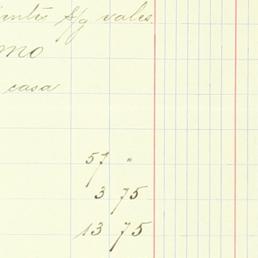 intes s/g vales
mo
casa
57 "
3 75
13 75